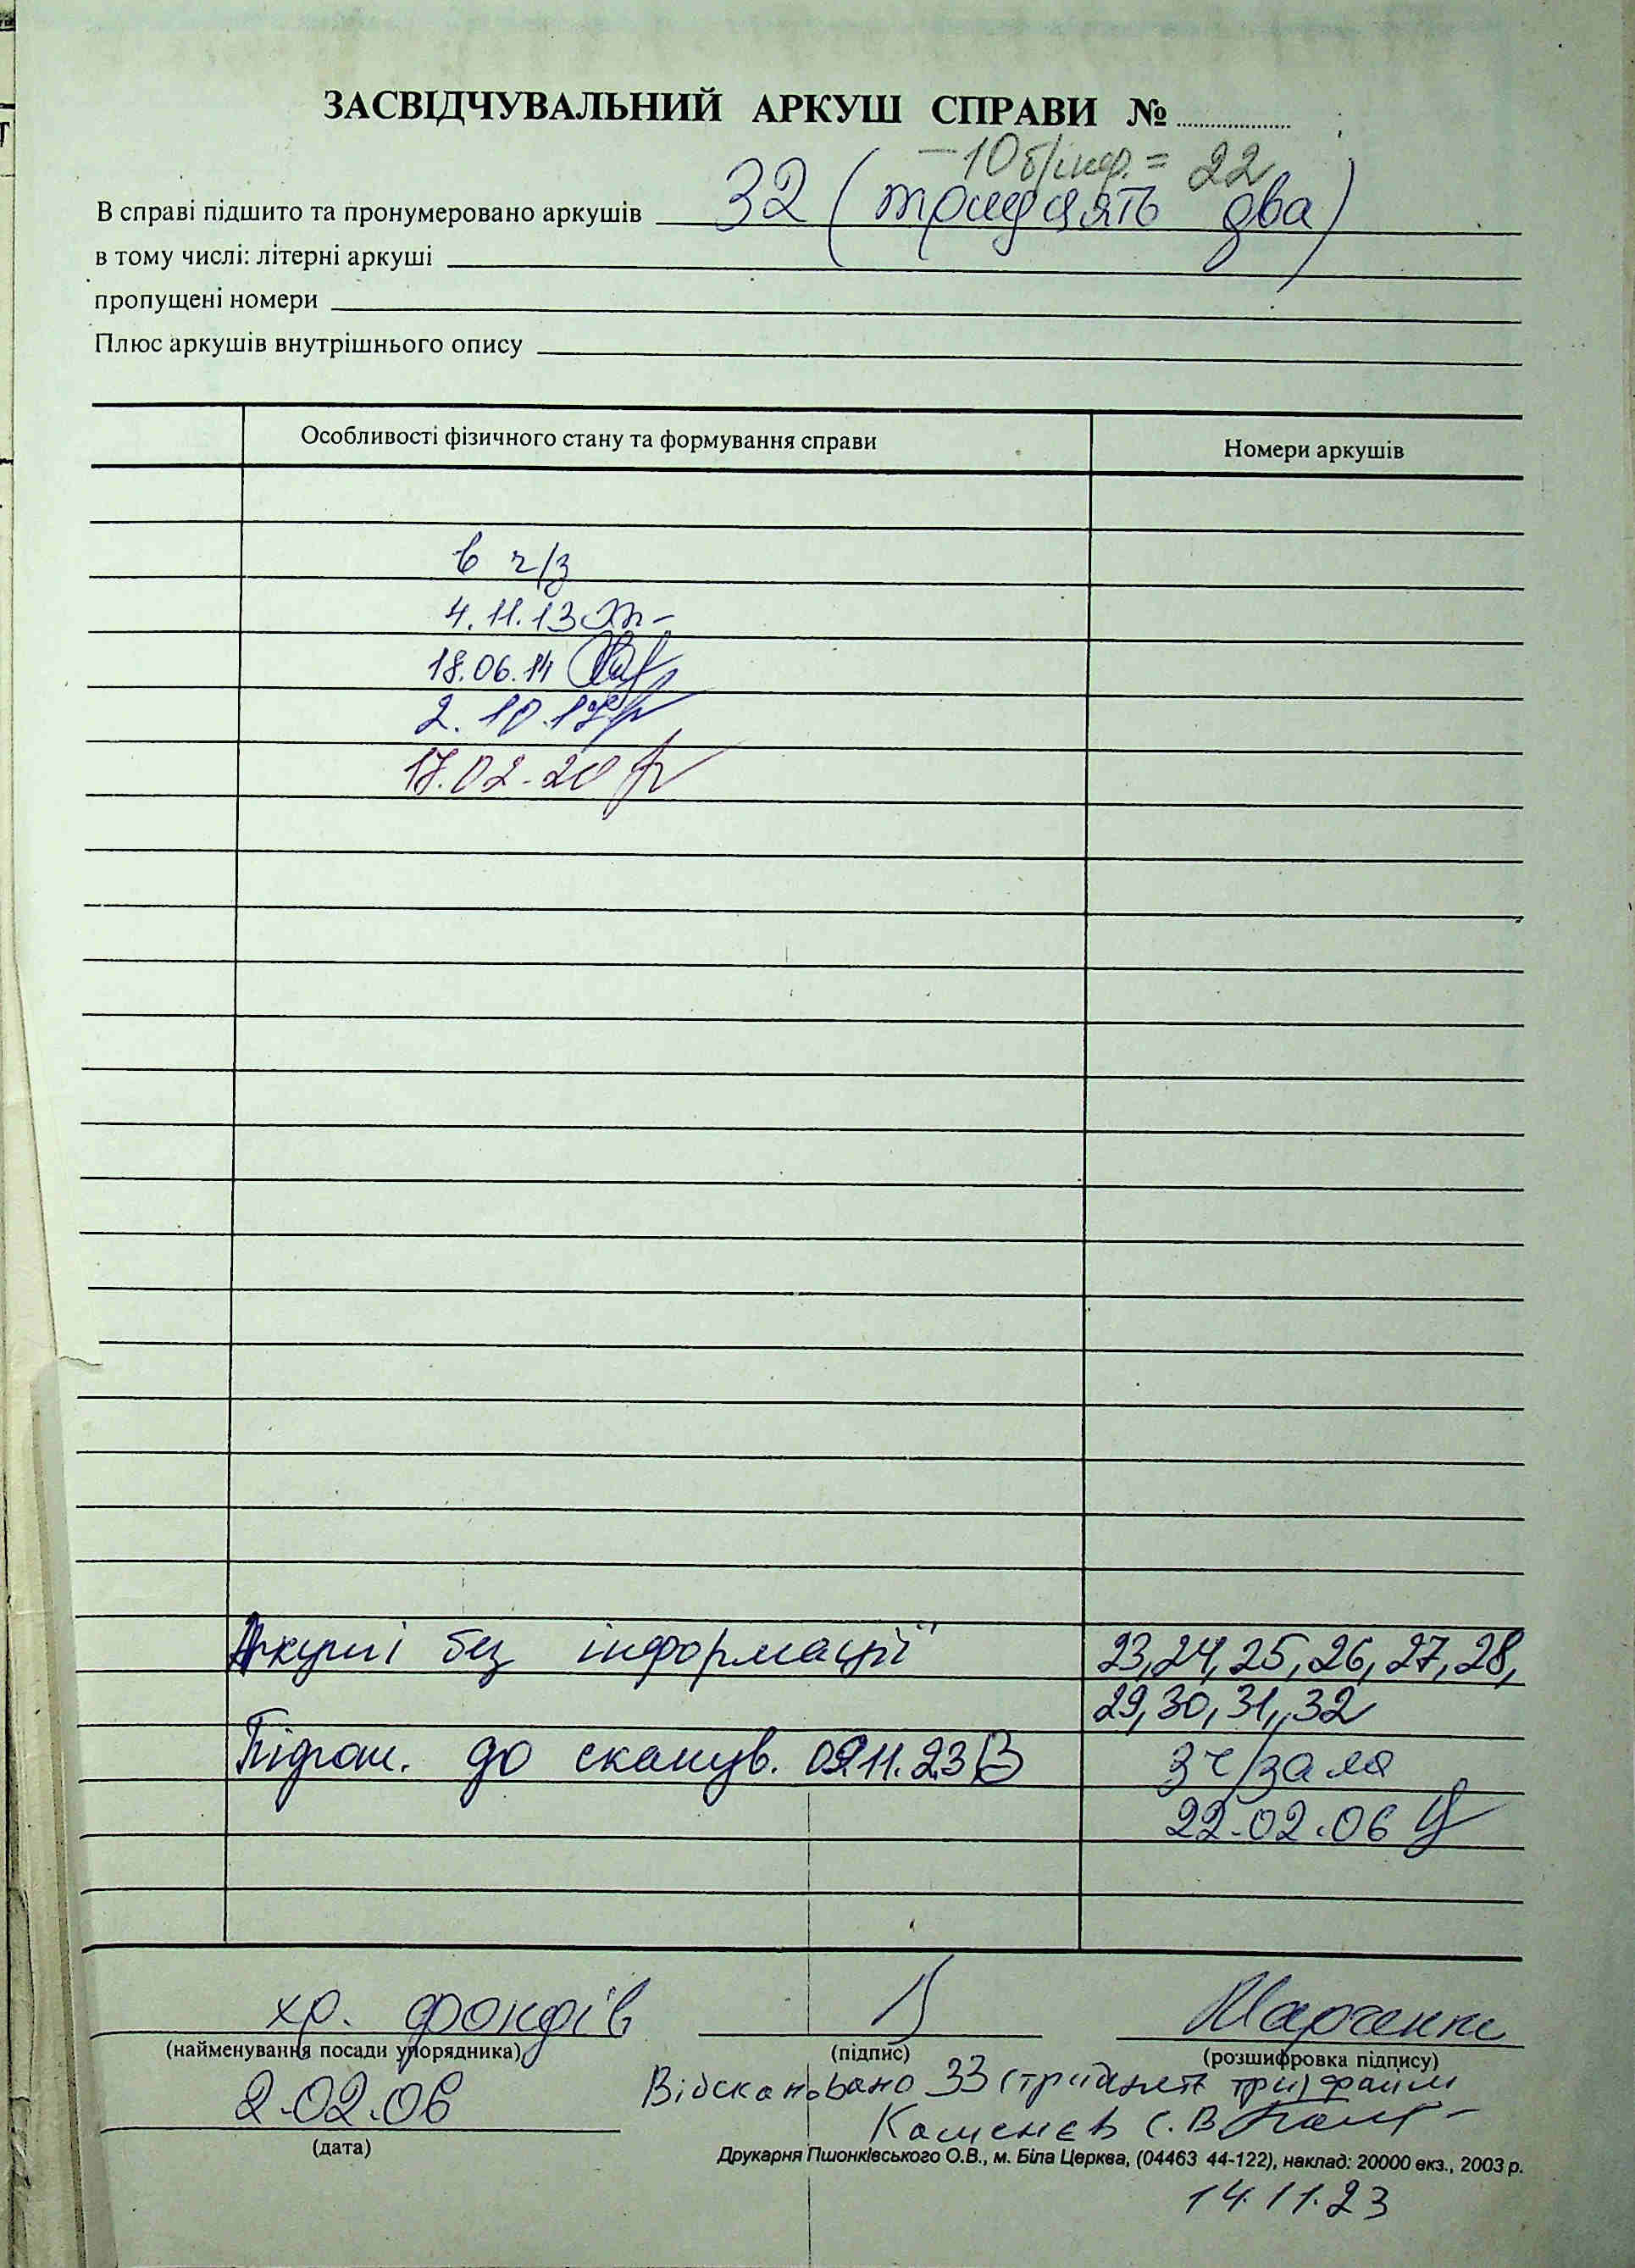 ЗАСВІДЧУВАЛЬНИЙ АРКУШ СПРАВИ №
–10 б/інф. = 22
В справі підшито та пронумеровано аркушів 32 (тридцять два)
в тому числі: літерні аркуші
пропущені номери
Плюс аркушів внутрішнього опису
Особливості фізичного стану та формування справи
Номери аркушів
в ч/з
4.11.13
18.06.14
2.10.17
17.02.20
Аркуші без інформації 23, 24, 25, 26, 27, 28,
29, 30, 31, 32
Підгот. до сканув. 09.11.23 З ч/зала
22.02.06
хр. фондів Марченко
(найменування посади упорядника) (підпис) (розшифровка підпису)
2.02.06
(дата)
Відскановано 33 (тридцять три) файли
Каменєв С.В
Друкарня Пшонківського О.В., м. Біла Церква, (04463 44-122), наклад: 20000 екз., 2003 р.
14.11.23